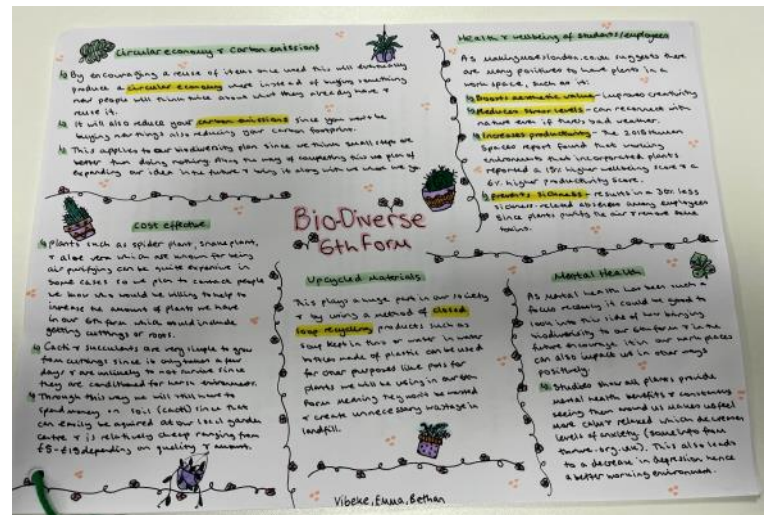 Circular economy & Carbon emissions
↳ By encouraging a reuse of items once used this will eventually
produce a circular economy where instead of buying something
new people will think twice about what they already have &
reuse it.
↳ It will also reduce your carbon emissions since you won't be
buying new things also reducing your carbon footprint.
↳ This applies to our biodiversity plan since we think small steps are
better than doing nothing. Along the way of completing this we plan of
expanding our idea in the future & bring it along with us when we go.
Cost effective
↳ Plants such as spider plant, snake plant,
& aloe vera which are known for being
air purifying can be quite expensive in
some cases so we plan to contact people
we know who would be willing to help to
increase the amount of plants we have
in our 6th form which could include
getting cuttings or roots.
↳ Cacti & succulents are very simple to grow
from cuttings since it only takes a few
days & are unlikely to not survive since
they are conditioned for harsh environment.
↳ Through this way we will still have to
spend money on soil (cacti) since that
can easily be acquired at our local garden
centre & is relatively cheap ranging from
£5-£19 depending on quality & amount.
Bio-Diverse
6th Form
Upcycled Materials
This plays a huge part in our society
& by using a method of closed
loop recycling products such as
soup kept in tins or water in water
bottles made of plastic can be used
for other purposes like pots for
plants we will be using in our 6th
form meaning they won't be wasted
& create unnecessary wastage in
landfill.
Vibeke, Emma, Bethan
Health & wellbeing of students/employees
As makingmoveslondon.co.uk suggests there
are many positives to have plants in a
work space, such as it:
↳ Boosts aesthetic value - improves creativity
↳ Reduces stress levels - can reconnect with
nature even if there's bad weather.
↳ Increases productivity - The 2015 Human
Spaces report found that working
environments that incorporated plants
reported a 15% higher wellbeing score & a
6% higher productivity score.
↳ prevents sickness - results in a 30% less
sickness-related absences among employees
since plants purify the air & remove
toxins.
Mental Health
As mental health has been such a
focus recently it could be good to
look into this side of how bringing
biodiversity to our 6th form & in the
future encourage it in our work places
can also impact us in other ways
positively.
↳ Studies show all plants provide
mental health benefits & constantly
seeing them around us makes us feel
more calm & relaxed which decreases
levels of anxiety. (some info from
thrive.org.uk). This also leads
to a decrease in depression hence
a better working environment.